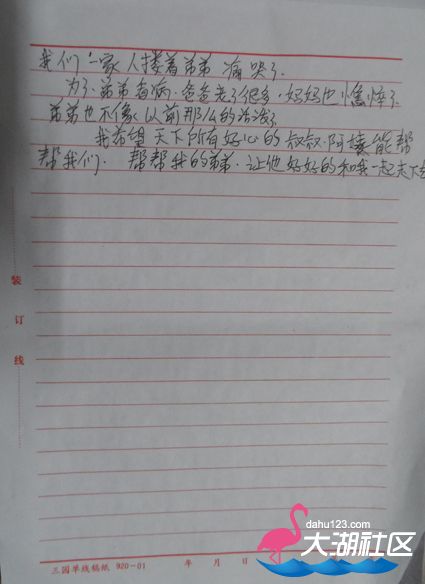 我们一家人搂着弟弟痛哭了
为了弟弟看病.爸爸老了很多.妈妈也憔悴了
弟弟也不像以前那么的活泼了
我希望天下所有好心的叔叔.阿姨能帮
帮我们.帮帮我的弟弟.让他好好的和我一起走下去
装
订
线
三园单线稿纸 920-01 年 月 日
dahu123.com
大湖社区